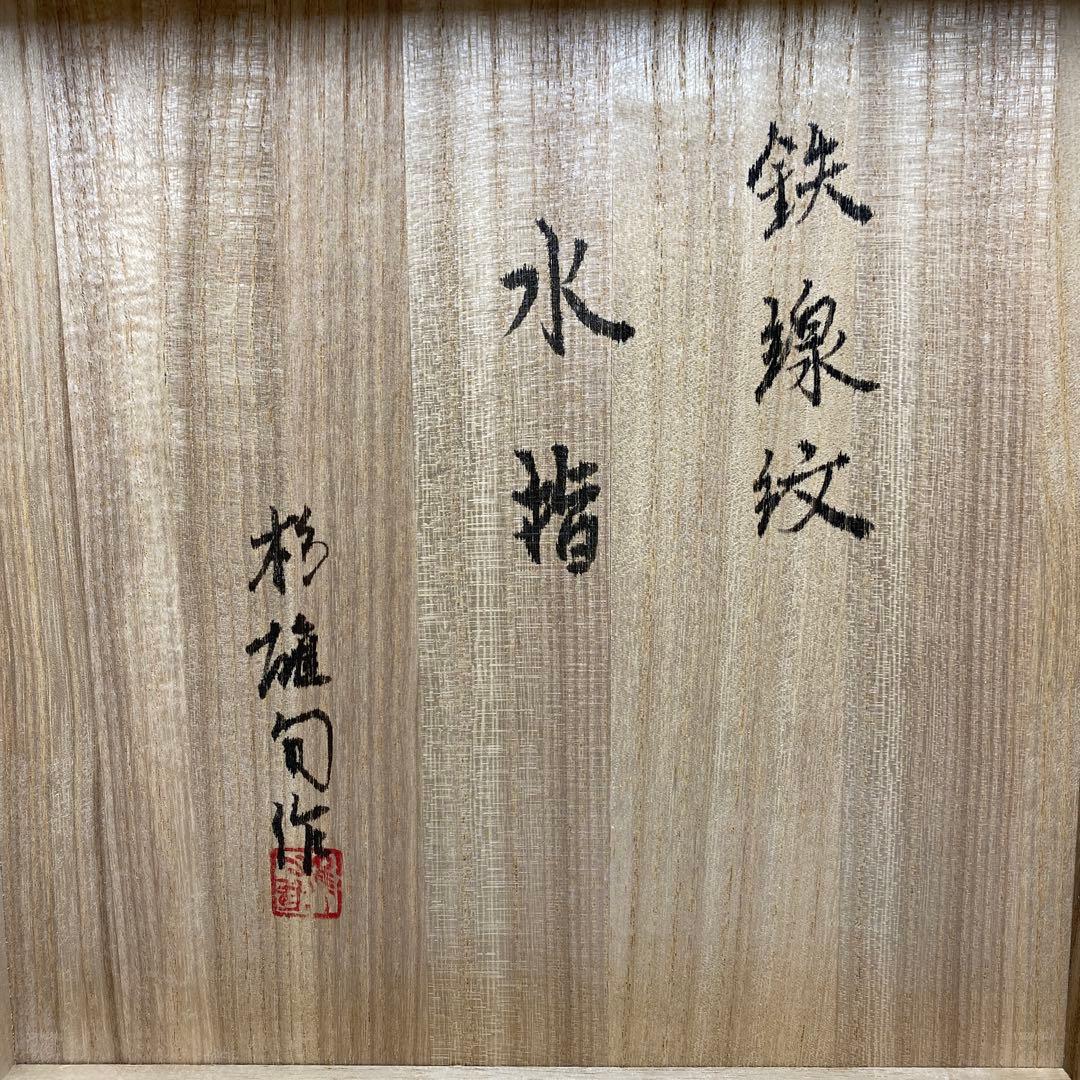 鉄線紋
水指
杉雄旬作